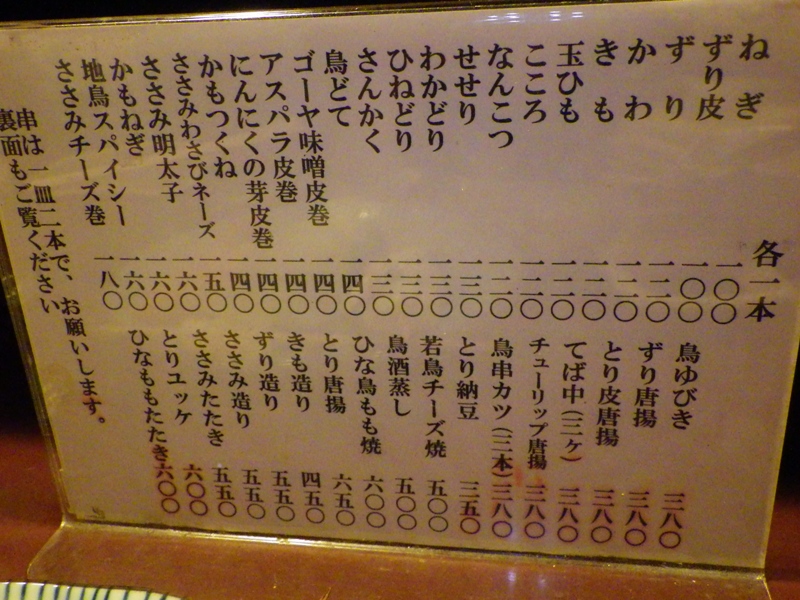 各一本
ねぎ 一〇〇
ずり皮 一〇〇
ずり 一二〇
かわ 一二〇
きも 一二〇
玉ひも 一二〇
こころ 一二〇
なんこつ 一二〇
せせり 一三〇
わかどり 一三〇
ひねどり 一三〇
さんかく 一三〇
鳥どて 一四〇
ゴーヤ味噌皮巻 一四〇
アスパラ皮巻 一四〇
にんにくの芽皮巻 一四〇
かもつくね 一四〇
ささみわさびネーズ 一五〇
ささみ明太子 一六〇
かもねぎ 一六〇
地鳥スパイシー 一六〇
ささみチーズ巻 一八〇
鳥ゆびき 三八〇
ずり唐揚 三八〇
とり皮唐揚 三八〇
てば中(三ヶ) 三八〇
チューリップ唐揚 三八〇
鳥串カツ(三本) 三八〇
とり納豆 三五〇
若鳥チーズ焼 五〇〇
鳥酒蒸し 五〇〇
ひな鳥もも焼 六〇〇
とり唐揚 六五〇
きも造り 四五〇
ずり造り 五五〇
ささみ造り 五五〇
ささみたたき 五五〇
とりユッケ 六〇〇
ひなももたたき 六〇〇
串は一皿二本で、お願いします。
裏面もご覧ください